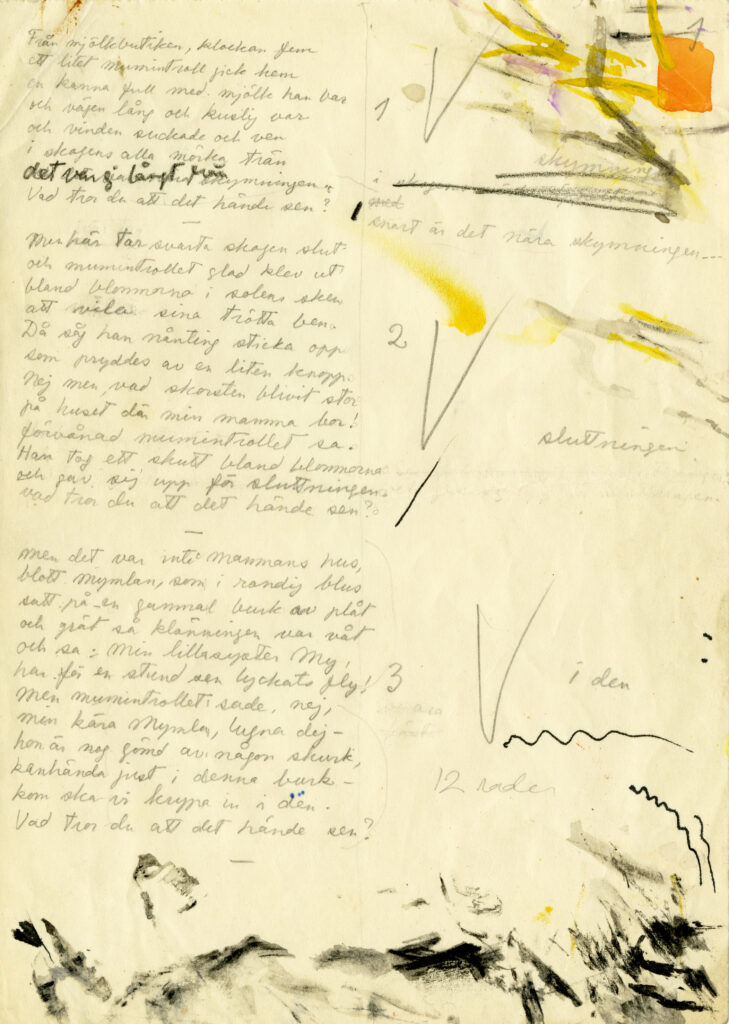 1
Från mjölkbutiken, klockan fem
ett litet mumintroll gick hem
en kanna full med mjölk han bar
och vägen lång och kuslig var
och vinden suckade och ven
i skogens alla mörka trän
det var ej långt från skymningen..
Vad tror du att det hände sen?
1
skymningen
i
med
snart är det nära skymningen---
Men här tar svarta skogen slut
och mumintrollet glad klev ut
bland blommorna i solens sken
att vila sina trötta ben.
Då såg han nånting sticka opp
som pryddes av en liten knopp.
Nej men, vad skorsten blivit stor
på huset där min mamma bor!
förvånad mumintrollet sa.
Han tog ett skutt bland blommorna
och gav sig upp för sluttningen.
vad tror du att det hände sen?
2
sluttningen.
Men det var inte mammans hus,
blott Mymlan, som i randig blus
satt på en gammal burk av plåt
och grät så klänningen var våt
och sa: Min lillasyster My,
har för en stund sen lyckats fly!
Men mumintrollet sade, nej,
men kära Mymla, lugna dej-
hon är nog gömd av någon skurk,
kanhända just i denna burk-
kom ska vi krypa in i den.
Vad tror du att det hände sen?
3
i den
12 rader